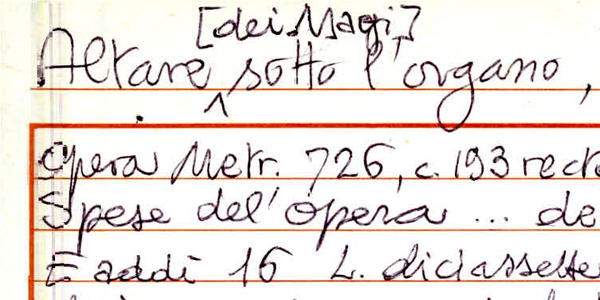 [dei Magi]
Altare sotto l'organo,
Opera Metr. 726, c. 193 recto
Spese del'opera ... de
E addì 16 L. diciassette